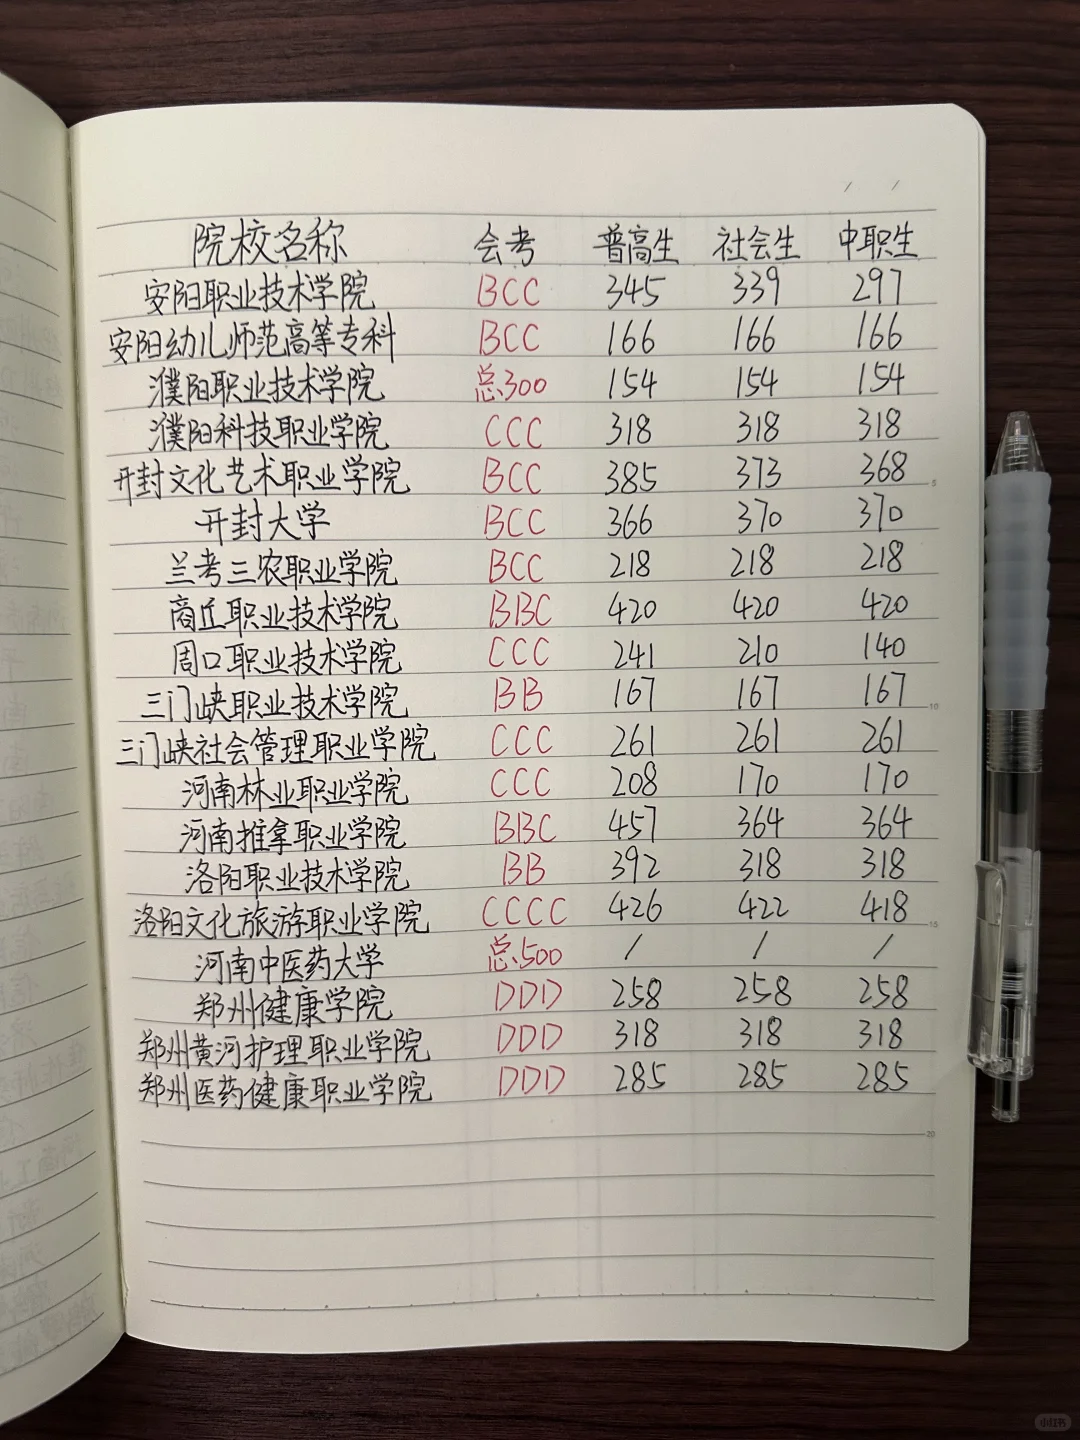 院校名称 会考 普高生 社会生 中职生
安阳职业技术学院 BCC 345 339 297
安阳幼儿师范高等专科 BCC 166 166 166
濮阳职业技术学院 总300 154 154 154
濮阳科技职业学院 CCC 318 318 318
开封文化艺术职业学院 BCC 385 373 368
开封大学 BCC 366 370 370
兰考三农职业学院 BCC 218 218 218
商丘职业技术学院 BBC 420 420 420
周口职业技术学院 CCC 241 210 140
三门峡职业技术学院 BB 167 167 167
三门峡社会管理职业学院 CCC 261 261 261
河南林业职业学院 CCC 208 170 170
河南推拿职业学院 BBC 457 364 364
洛阳职业技术学院 BB 392 318 318
洛阳文化旅游职业学院 CCCC 426 422 418
河南中医药大学 总500 / / /
郑州健康学院 DDD 258 258 258
郑州黄河护理职业学院 DDD 318 318 318
郑州医药健康职业学院 DDD 285 285 285
5
10
15
20
小红书